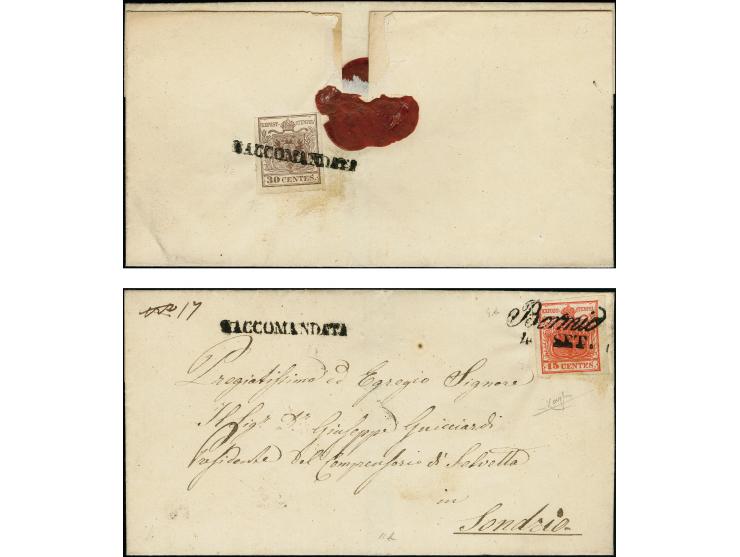 RACCOMANDATA
30 CENTES.
No 17
RACCOMANDATA
Bormio
4 SET.
15 CENTES
Pregiatissimo ed Egregio Signore
Il Sigr. Dr. Giuseppe Guicciardi
Presidente del Compensorio di Selvetta
in
Sondrio